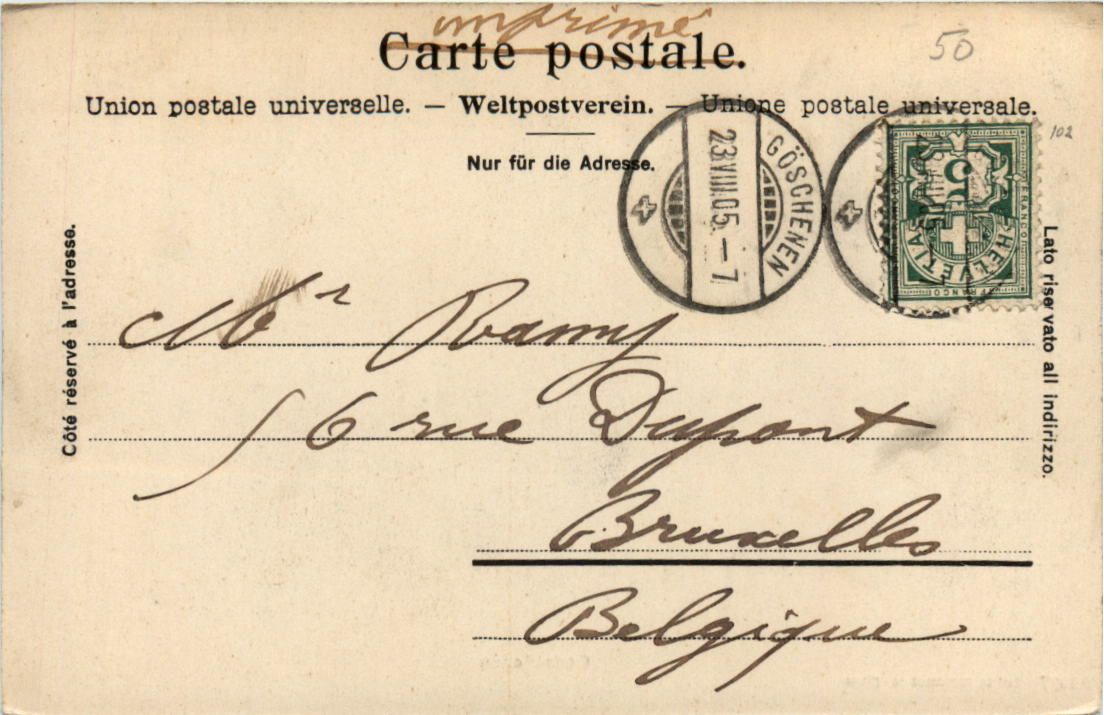 imprimé
Carte postale.
50
Union postale universelle. — Weltpostverein. — Unione postale universale.
102
Nur für die Adresse.
GÖSCHENEN
23.VIII.05.–7
5
HELVETIA
FRANCO
FRANCO
Côté réservé à l'adresse.
Lato riservato all indirizzo.
Mr Ramy
56 rue Dupont
Bruxelles
Belgique